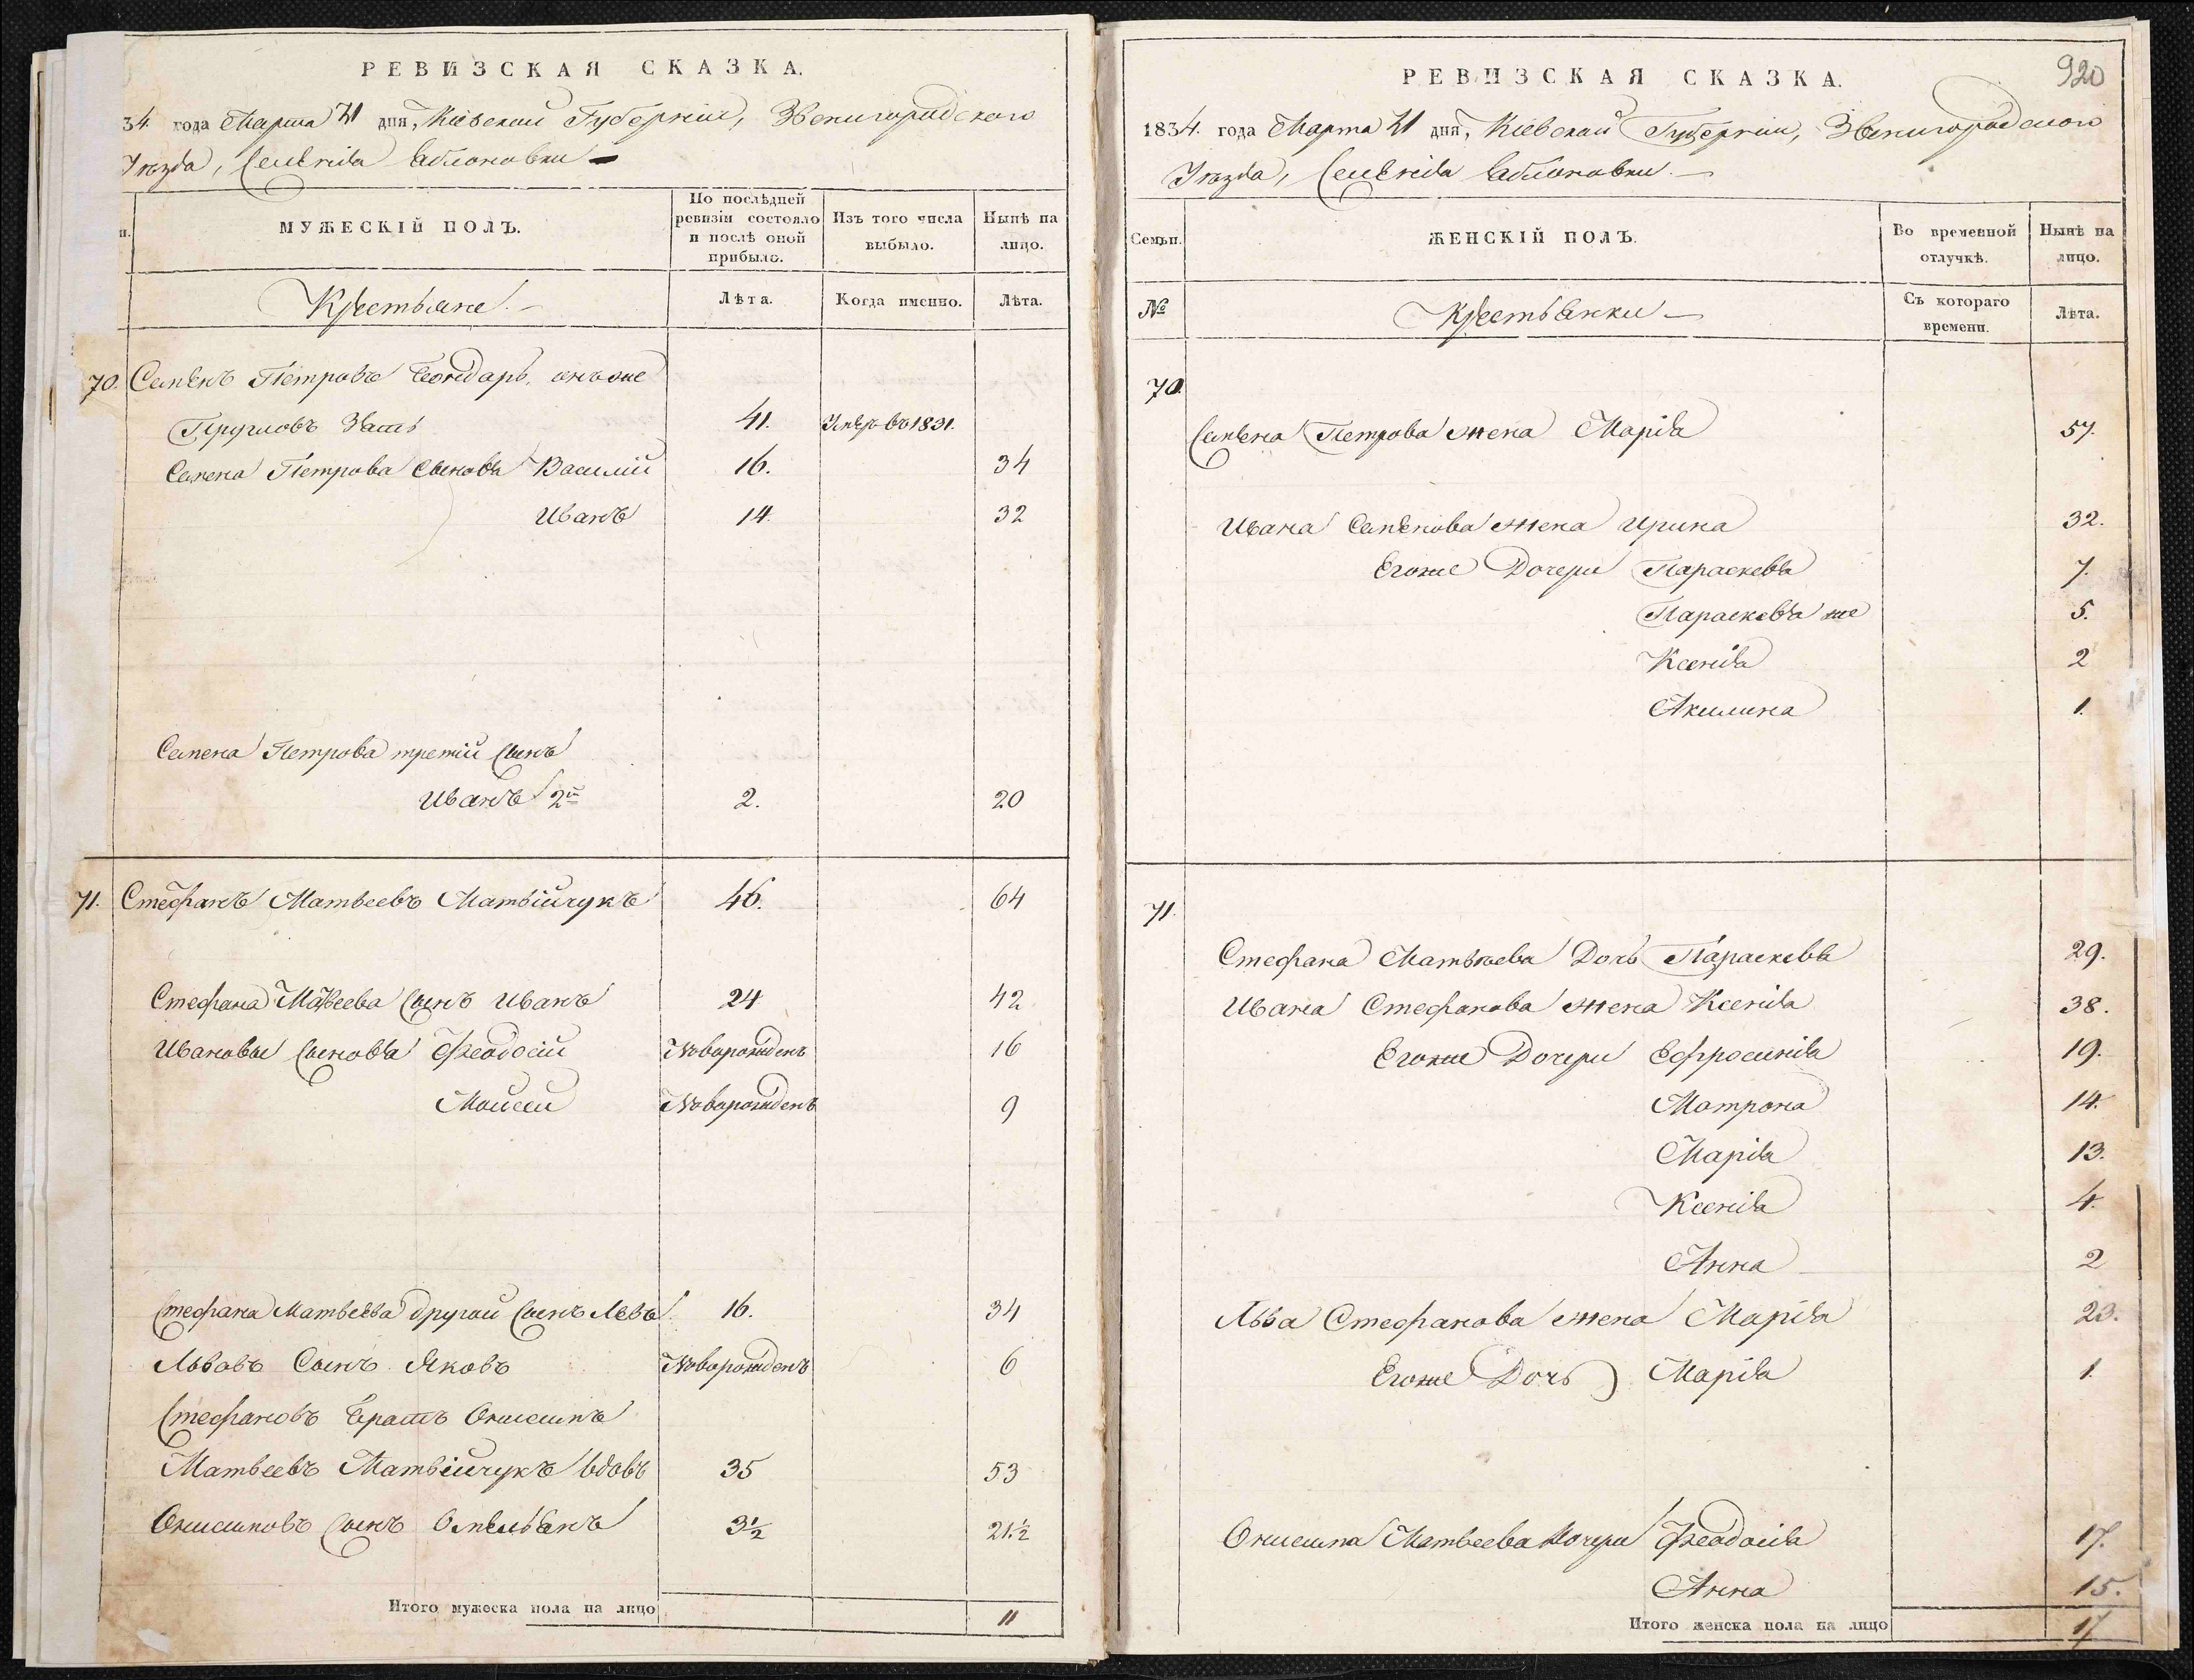 РЕВИЗСКАЯ СКАЗКА.
34. года Марта 21 дня, Кіевской Губерніи, Звенигородского
Уезда, Селенія Яблоновки
МУЖЕСКІЙ ПОЛЪ.
По послѣдней ревизіи состояло и послѣ оной прибыло.
Изъ того числа выбыло.
Нынѣ на лицо.
Крестьяне
Лѣта.
Когда именно.
Лѣта.
70. Семенъ Петровъ Бондарь, онъ же
Зать 41. Умеръ въ 1831.
Семена Петрова Сыновья Василій 16. 34
Иванъ 14. 32
Семена Петрова третій Сынъ
Иванъ 2й 2. 20
71. Стефанъ Матвеевъ Матвійчукъ 46. 64
Стефана Матвеева Сынъ Иванъ 24 42
Ивановы Сыновья Феодосій Новорожденъ 16
Моисей Новорожденъ 9
Стефана Матвеева другой Сынъ Левъ 16. 34
Львовъ Сынъ Яковъ Новорожденъ 6
Стефановъ Братъ Онисимъ
Матвеевъ Матвійчукъ вдовъ 35 53
Онисимовъ Сынъ Омельянъ 3 1/2 21 1/2
Итого мужеска пола на лицо 11
920
РЕВИЗСКАЯ СКАЗКА.
1834. года Марта 21 дня, Кіевской Губерніи, Звенигородского
Уезда, Селенія Яблоновки.
Семьи.
ЖЕНСКІЙ ПОЛЪ.
Во временной отлучкѣ.
Нынѣ на лицо.
№
Крестьянки
Съ котораго времени.
Лѣта.
70.
Семена Петрова жена Марія 57.
Ивана Семенова жена Ирина 32.
Егоже Дочери Параскевія 7.
Параскевія же 5.
Ксенія 2
Акилина 1.
71.
Стефана Матвѣева Дочь Параскевія 29.
Ивана Стефанова жена Ксенія 38.
Егоже Дочери Ефросинія 19.
Матрона 14.
Марія 13.
Ксенія 4.
Анна 2
Льва Стефанова жена Марія 23.
Егоже Дочь Марія 1.
Онисима Матвеева Дочери Феодосія 17.
Анна 15.
Итого женска пола на лицо 17